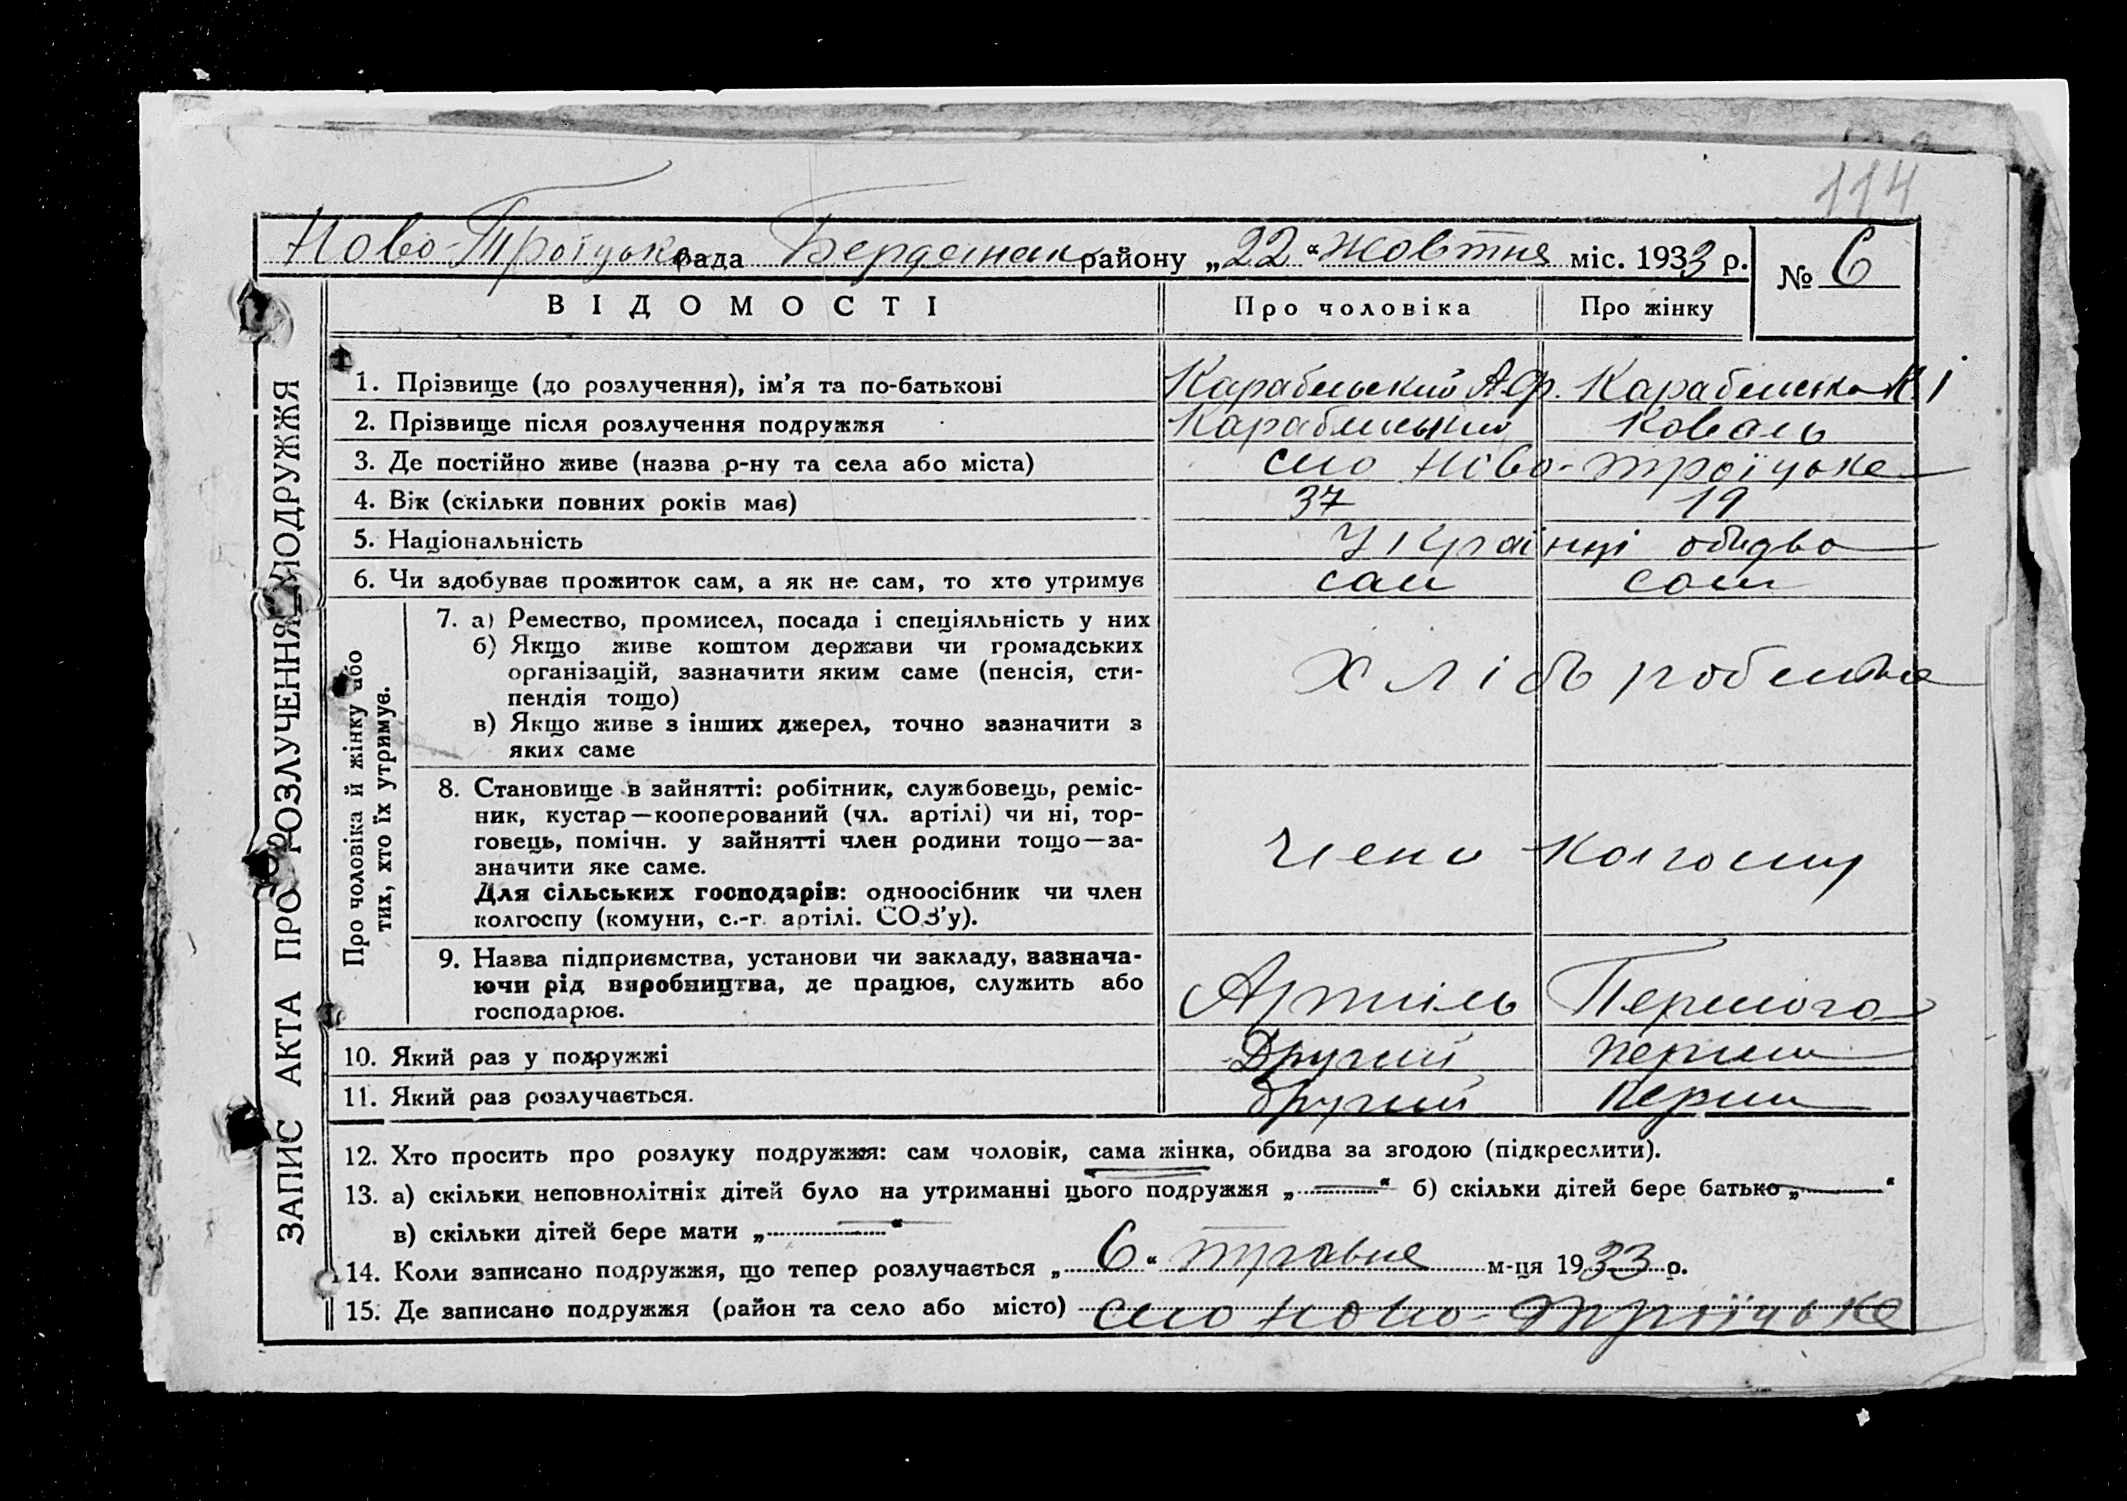 114
Ново-Троїцька рада Бердянськ району „22“ жовтня міс. 1933 р. № 6
ВІДОМОСТІ Про чоловіка Про жінку
ЗАПИС АКТА ПРО РОЗЛУЧЕННЯ ПОДРУЖЖЯ
1. Прізвище (до розлучення), ім’я та по-батькові Карабельский А.Ф. Карабельська К. І
2. Прізвище після розлучення подружжя Коваль
3. Де постійно живе (назва р-ну та села або міста) село Ново-Троїцьке
4. Вік (скільки повних років має) 37 19
5. Національність Українці обидва
6. Чи здобуває прожиток сам, а як не сам, то хто утримує сам сам
Про чоловіка й жінку або
тих, хто їх утримує.
7. а) Ремество, промисел, посада і спеціяльність у них
б) Якщо живе коштом держави чи громадських
організацій, зазначити яким саме (пенсія, сти-
пендія тощо)
в) Якщо живе з інших джерел, точно зазначити з
яких саме
8. Становище в зайнятті: робітник, службовець, реміс-
ник, кустар—кооперований (чл. артілі) чи ні, тор-
говець, помічн. у зайнятті член родини тощо—за-
значити яке саме.
Для сільських господарів: одноосібник чи член
колгоспу (комуни, с.-г. артілі. СОЗ’у).
колгоспу
9. Назва підприємства, установи чи закладу, зазнача-
ючи рід виробництва, де працює, служить або
господарює.
Артіль Перемога
10. Який раз у подружжі Другий перший
11. Який раз розлучається. другий перший
12. Хто просить про розлуку подружжя: сам чоловік, сама жінка, обидва за згодою (підкреслити).
13. а) скільки неповнолітніх дітей було на утриманні цього подружжя „—“ б) скільки дітей бере батько „—“
в) скільки дітей бере мати „—“
14. Коли записано подружжя, що тепер розлучається „6“ травня м-ця 1933 р.
15. Де записано подружжя (район та село або місто) село Ново-Троїцьке